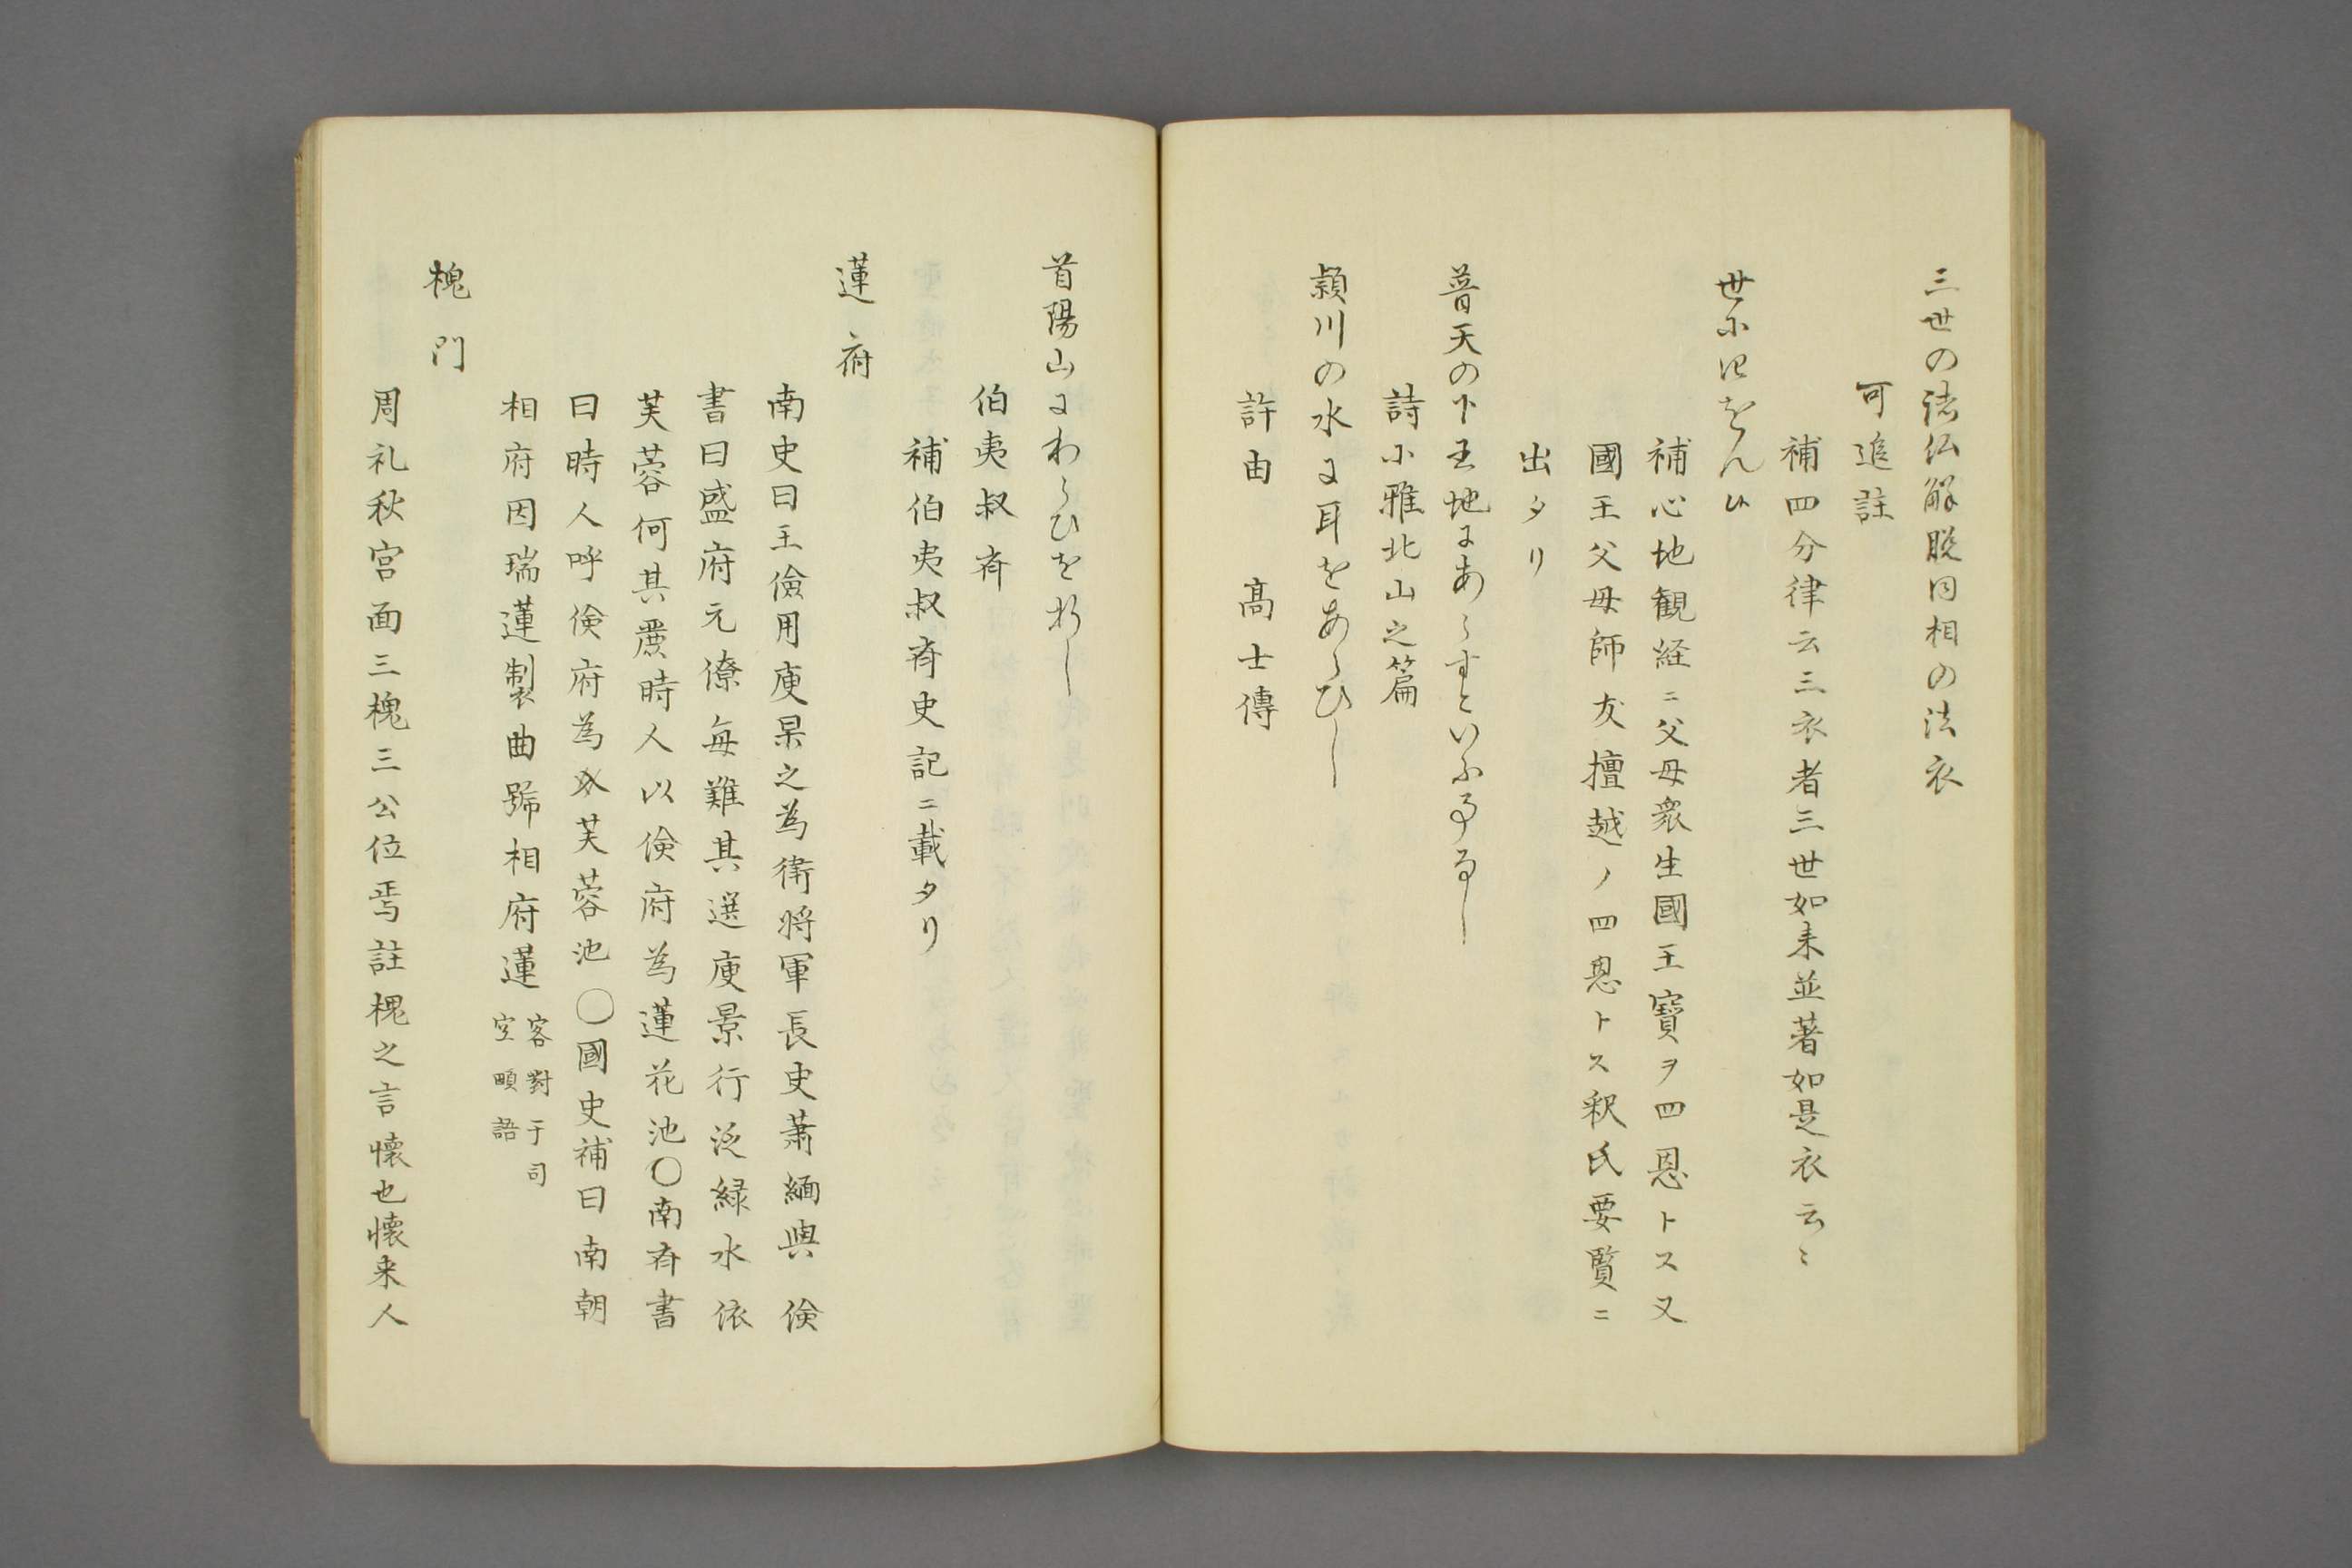 三世の諸仏解脱同相の法衣
可追註
補四分律云三衣者三世如来並著如是衣云〻
世に四をんひ
補心地観経ニ父母衆生國王寳ヲ四恩トス又
國王父母師友擅越ノ四恩トス釈氏要覧ニ
出タリ
普天の下王地にあらすといふ事なし
詩小雅北山之篇
潁川の水に耳をあらひし
許由　髙士傳
首陽山にわらひを折し
伯夷叔斉
補伯夷叔斉史記ニ載タリ
蓮府
南史曰王儉用庾杲之為衛將軍長史蕭緬與儉
書曰盛府元僚每難其選庾景行泛緑水依
芙蓉何其麗時人以儉府為蓮花池〇南斉書
曰時人呼儉府為芙蓉池〇國史補曰南朝
相府因瑞蓮製曲號相府蓮 客對于司
空頔語
槐門
周礼秋宮面三槐三公位焉註槐之言懐也懐来人